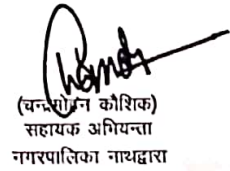 (चन्द्रमोहन कौशिक)
सहायक अभियन्ता
नगरपालिका नाथद्वारा